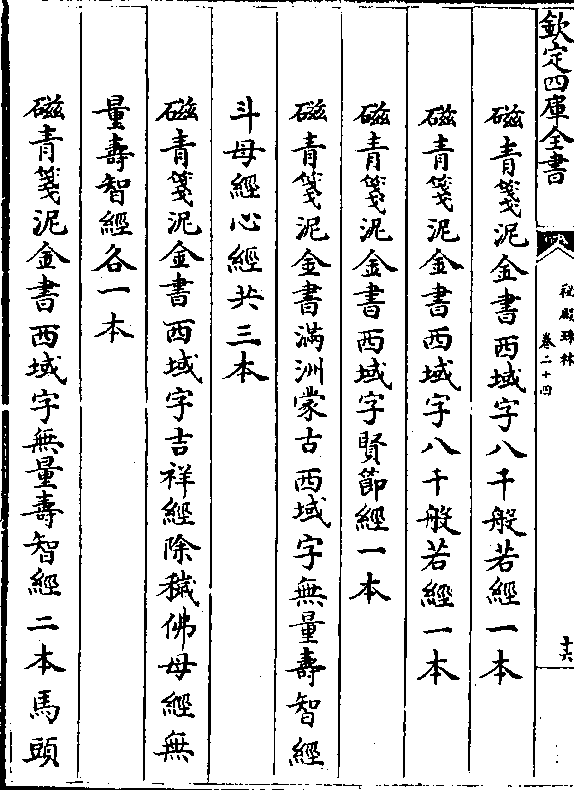 欽定四庫全書
祕殿珠林
卷二十四
十六
磁青箋泥金書西域字八千般若經一本
磁青箋泥金書西域字八千般若經一本
磁青箋泥金書西域字賢節經一本
磁青箋泥金書滿洲蒙古西域字無量壽智經
斗母經心經共三本
磁青箋泥金書西域字吉祥經除穢佛母經無
量壽智經各一本
磁青箋泥金書西域字無量壽智經二本馬頭